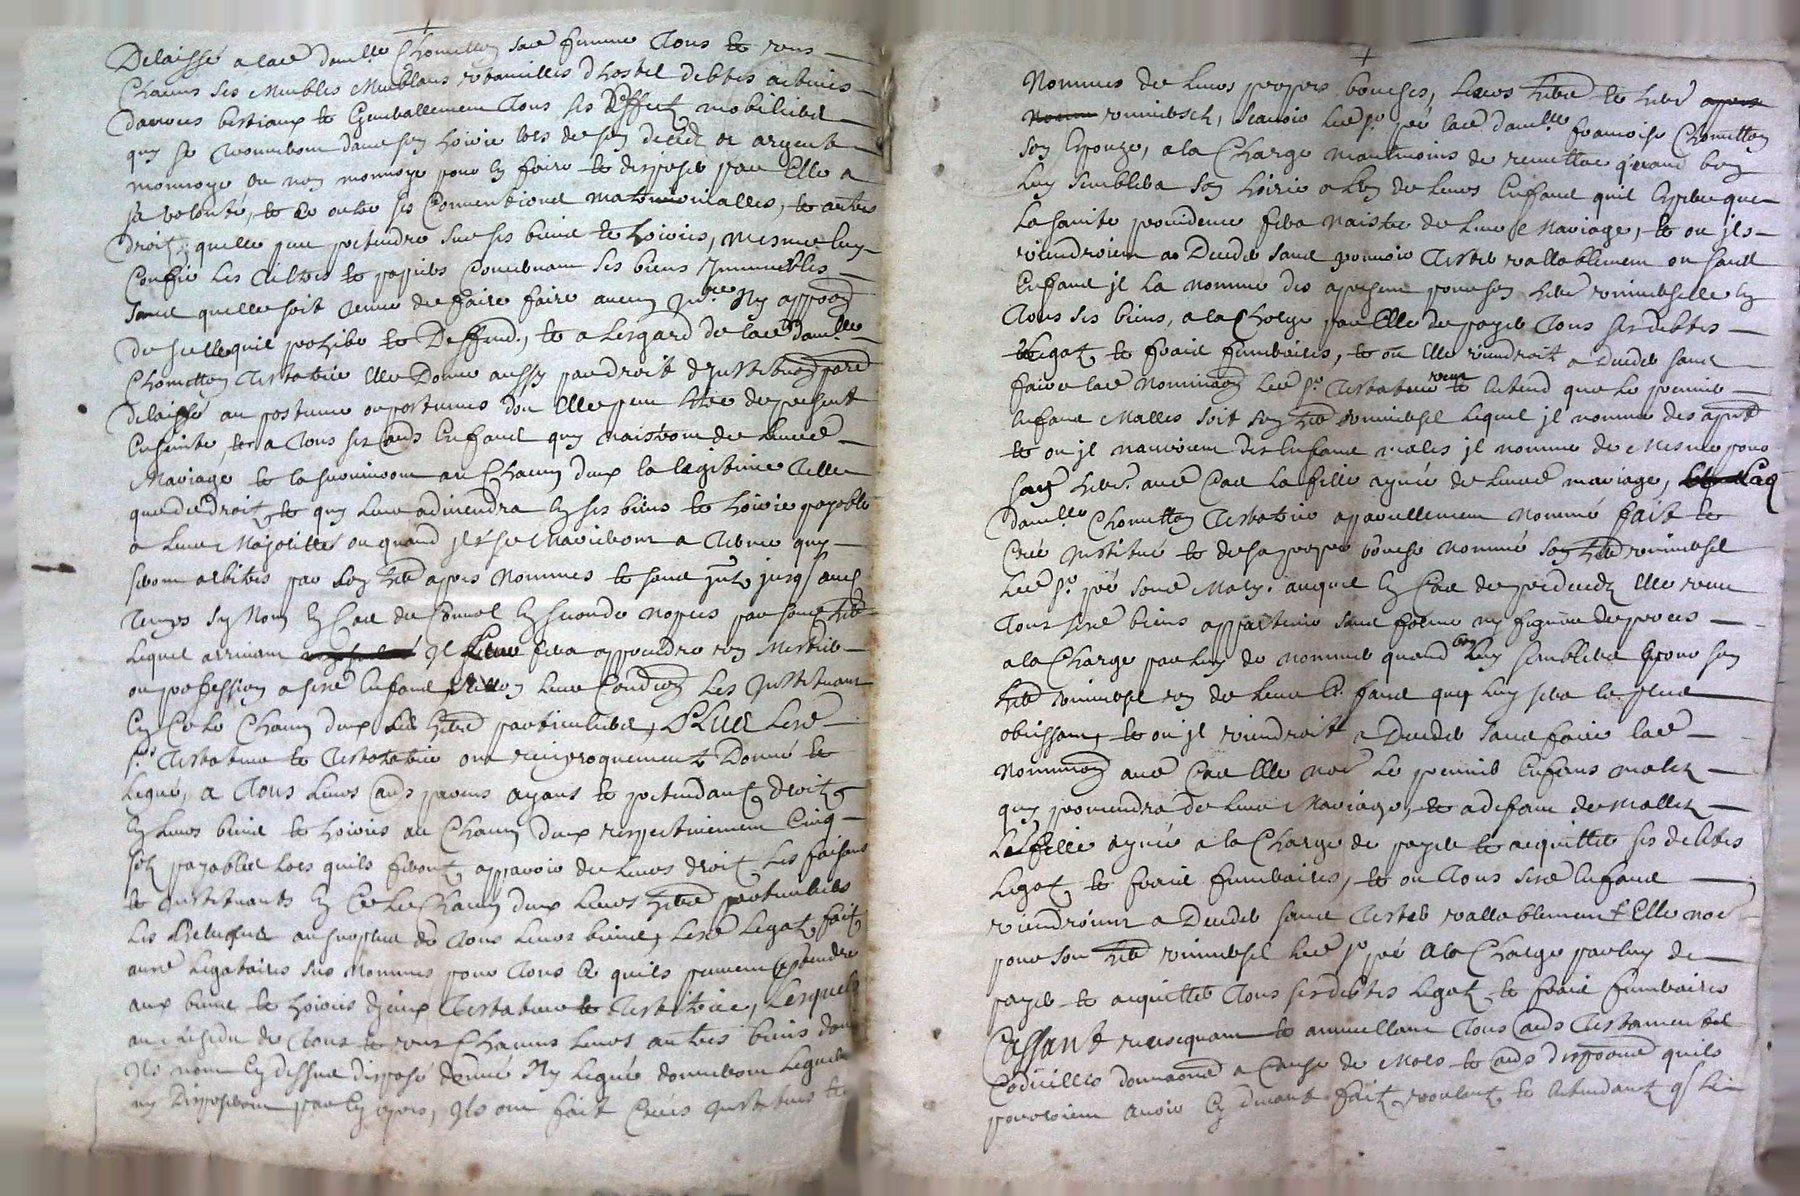 Delaissé a lad damlle Chometton sad femme Tous et vns
Chacuns ses Meubles Meublans vtancilles d'hostel debtes actiues
danrees bestiaux et Generallement Tous ses Effects mobiliers
quy se trouueront dans son hoirie lors de son deceds or argent
monnoyé ou non monnoyé pour en faire et disposer par Elle a
sa volonté, et ce outre ses Conuentions matrimonialles, et autres
droits quelle peut pretendre sur ses biens et hoirie, mesme luy
Confie les tiltres et papiers Concernant ses biens Immeubles
sans quelle soit tenue de faire faire aucun Inre Ny appoon
de scelle quil prohibe et Deffend, et a lesgard de lad damlle
Chometton Testatrice Elle Donne aussy par droit d'Institution
delaissé au postume ou postumes dont Elle peut estre de present
Enceinte, et a Tous ses aus Enfans quy naistront de leurd
Mariage et la suruiuront au Chacun deux la legitime telle
que de droit et quy leur aduiendra en ses biens et hoirie payable
a leur Majorité ou quand ils se Marieront a termes quy
seront arbitres par son here apres Nommes et sans jusques auxd
temps sy Non en Cas de Conuol en secondes nopces par sond here
lequel arriuant Il leur fera apprendre vn Mestier
ou profession a sesd Enfans selon leur Condition les Instituant
en Ce le Chacun deux ses heres particuliers, PLUS lesd
srs Testateur et Testatrice ont reciproquement Donné et
Legué, a Tous leurs aus parens ayans et pretendans droits
en leurs biens et hoiries au Chacun deux respectiuement Cinq
sols payables lors quils feront apparoir de leurs droits les faisans
et Instituants en Ce le Chacun deux leurs heres particuliers
les au surplus de Tous leurs biens, lesd legats faits
ausd legataires sus Nommes pour Tous ce quils peuuent pretendre
aux biens et hoiries Testateur et Testatrice, lesquels
au residu de Tous et vns Chacuns leurs autres biens dont
Ils nont Cy dessus disposé donné Ny legué donneront legueront
ny disposeront par Cy apres, Ils ont fait Créés Institues et
Nommes de leurs propres bouches, leurs here et here
vniuersels, scauoir led sr pré lad damlle francoise Chometton
son Epouze, a la Charge neantmoins de remettre quand bon
luy semblera son hoirie a lun de leurs Enfans quil Espere que
La sainte prouidence fera naistre de leurd Mariage, et ou ils
viendroient a Deceder sans pouuoir Tester vallablement ou sans
Enfans il la nomme des apresent pour son here vniuerselle en
Tous ses biens, a la Charge par Elle de payer Tous ses debtes
legats et fraix funeraires, et ou Elle viendroit a Deceder sans
faire lad nomination led sr Testateur veut et Entend que le premier
Enfans Malles soit son here vniuersel lequel il nomme des apnt
et ou il nauroient des Enfans males il nomme de Mesme pour
sad here aud Cas la fille aynée de leurd mariage,
damlle Chometton Testatrice appareillement Nommé fait et
Créé Institué et de sa propre bouche nommé son here vniuersel
led sr pré sond Mary, auquel en Cas de predeceds Elle veut
Tous sesd biens appartenir sans forme ny figure de proces
a la Charge par luy de nommer quand bon luy semblera pour son
here vniuersel vn de leurs Enfans quy luy sera le plus
obeissant, et ou il viendroit a Deceder sans faire lad
Nomination aud Cas Elle noe le premier Enfans males
quy prouiendra de leur Mariage, et a defaut de malles
La fille aynée a la Charge de payer et acquitter ses debtes
Legats et fraix funeraires, et ou Tous sesd Enfans
viendroient a Deceder sans Tester vallablement Elle noe
pour son here vniuersel led sr pré a la Charge par luy de
payer et acquitter Tous ses debtes legats et fraix funeraires
Cassant reuocquant et annullant Tous aus Testamens
Codicilles donnaons a Cause de Mort et aus dispoons quils
pouroient auoir Cy deuant fait, voulant et Entendant q